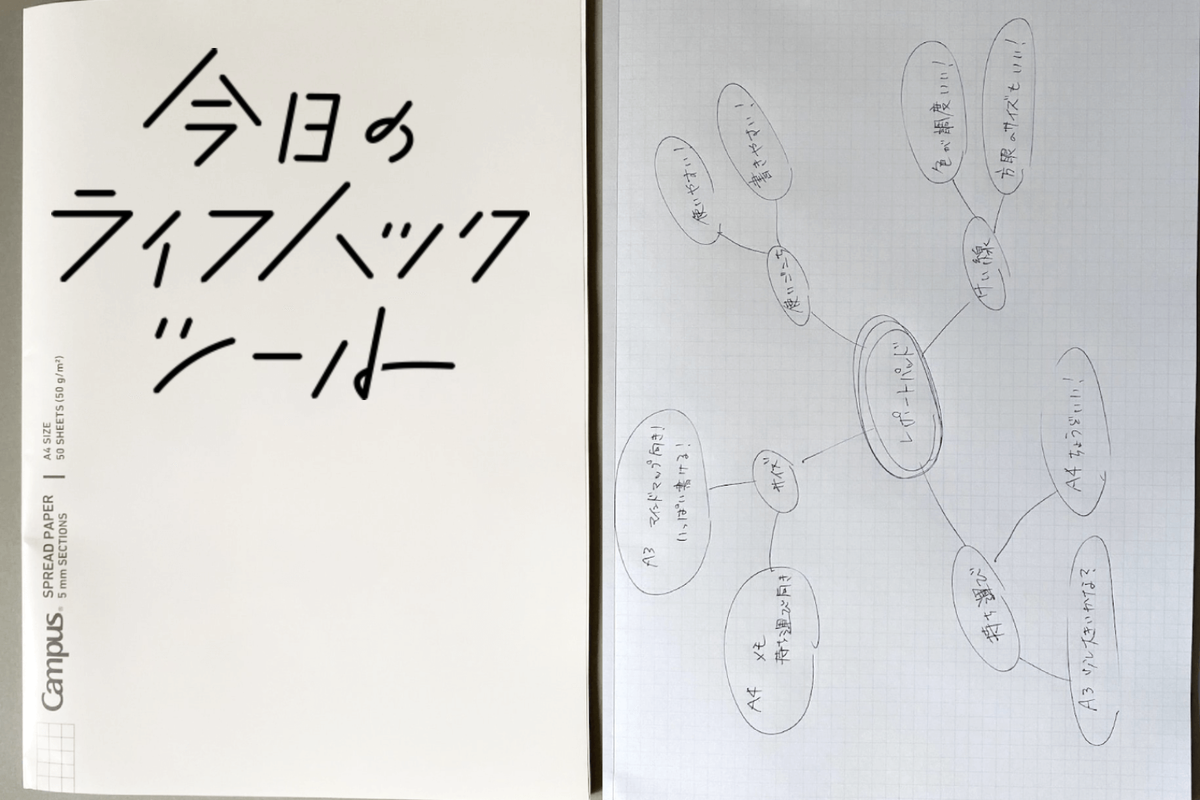 今日の
ライフハック
ツール
Campus®
SPREAD PAPER
5 mm SECTIONS
A4 SIZE
50 SHEETS (50 g/m²)
レポートパッド
使いごこち
使いやすい!
書きやすい!
けい線
色が調度いい!
方眼のサイズもいい!
サイズ
A3 マインドマップ向き!
いっぱい書ける!
A4 メモ
持ち運び向き
持ち運び
A4 ちょうどいい!
A3 少し大きいかな?